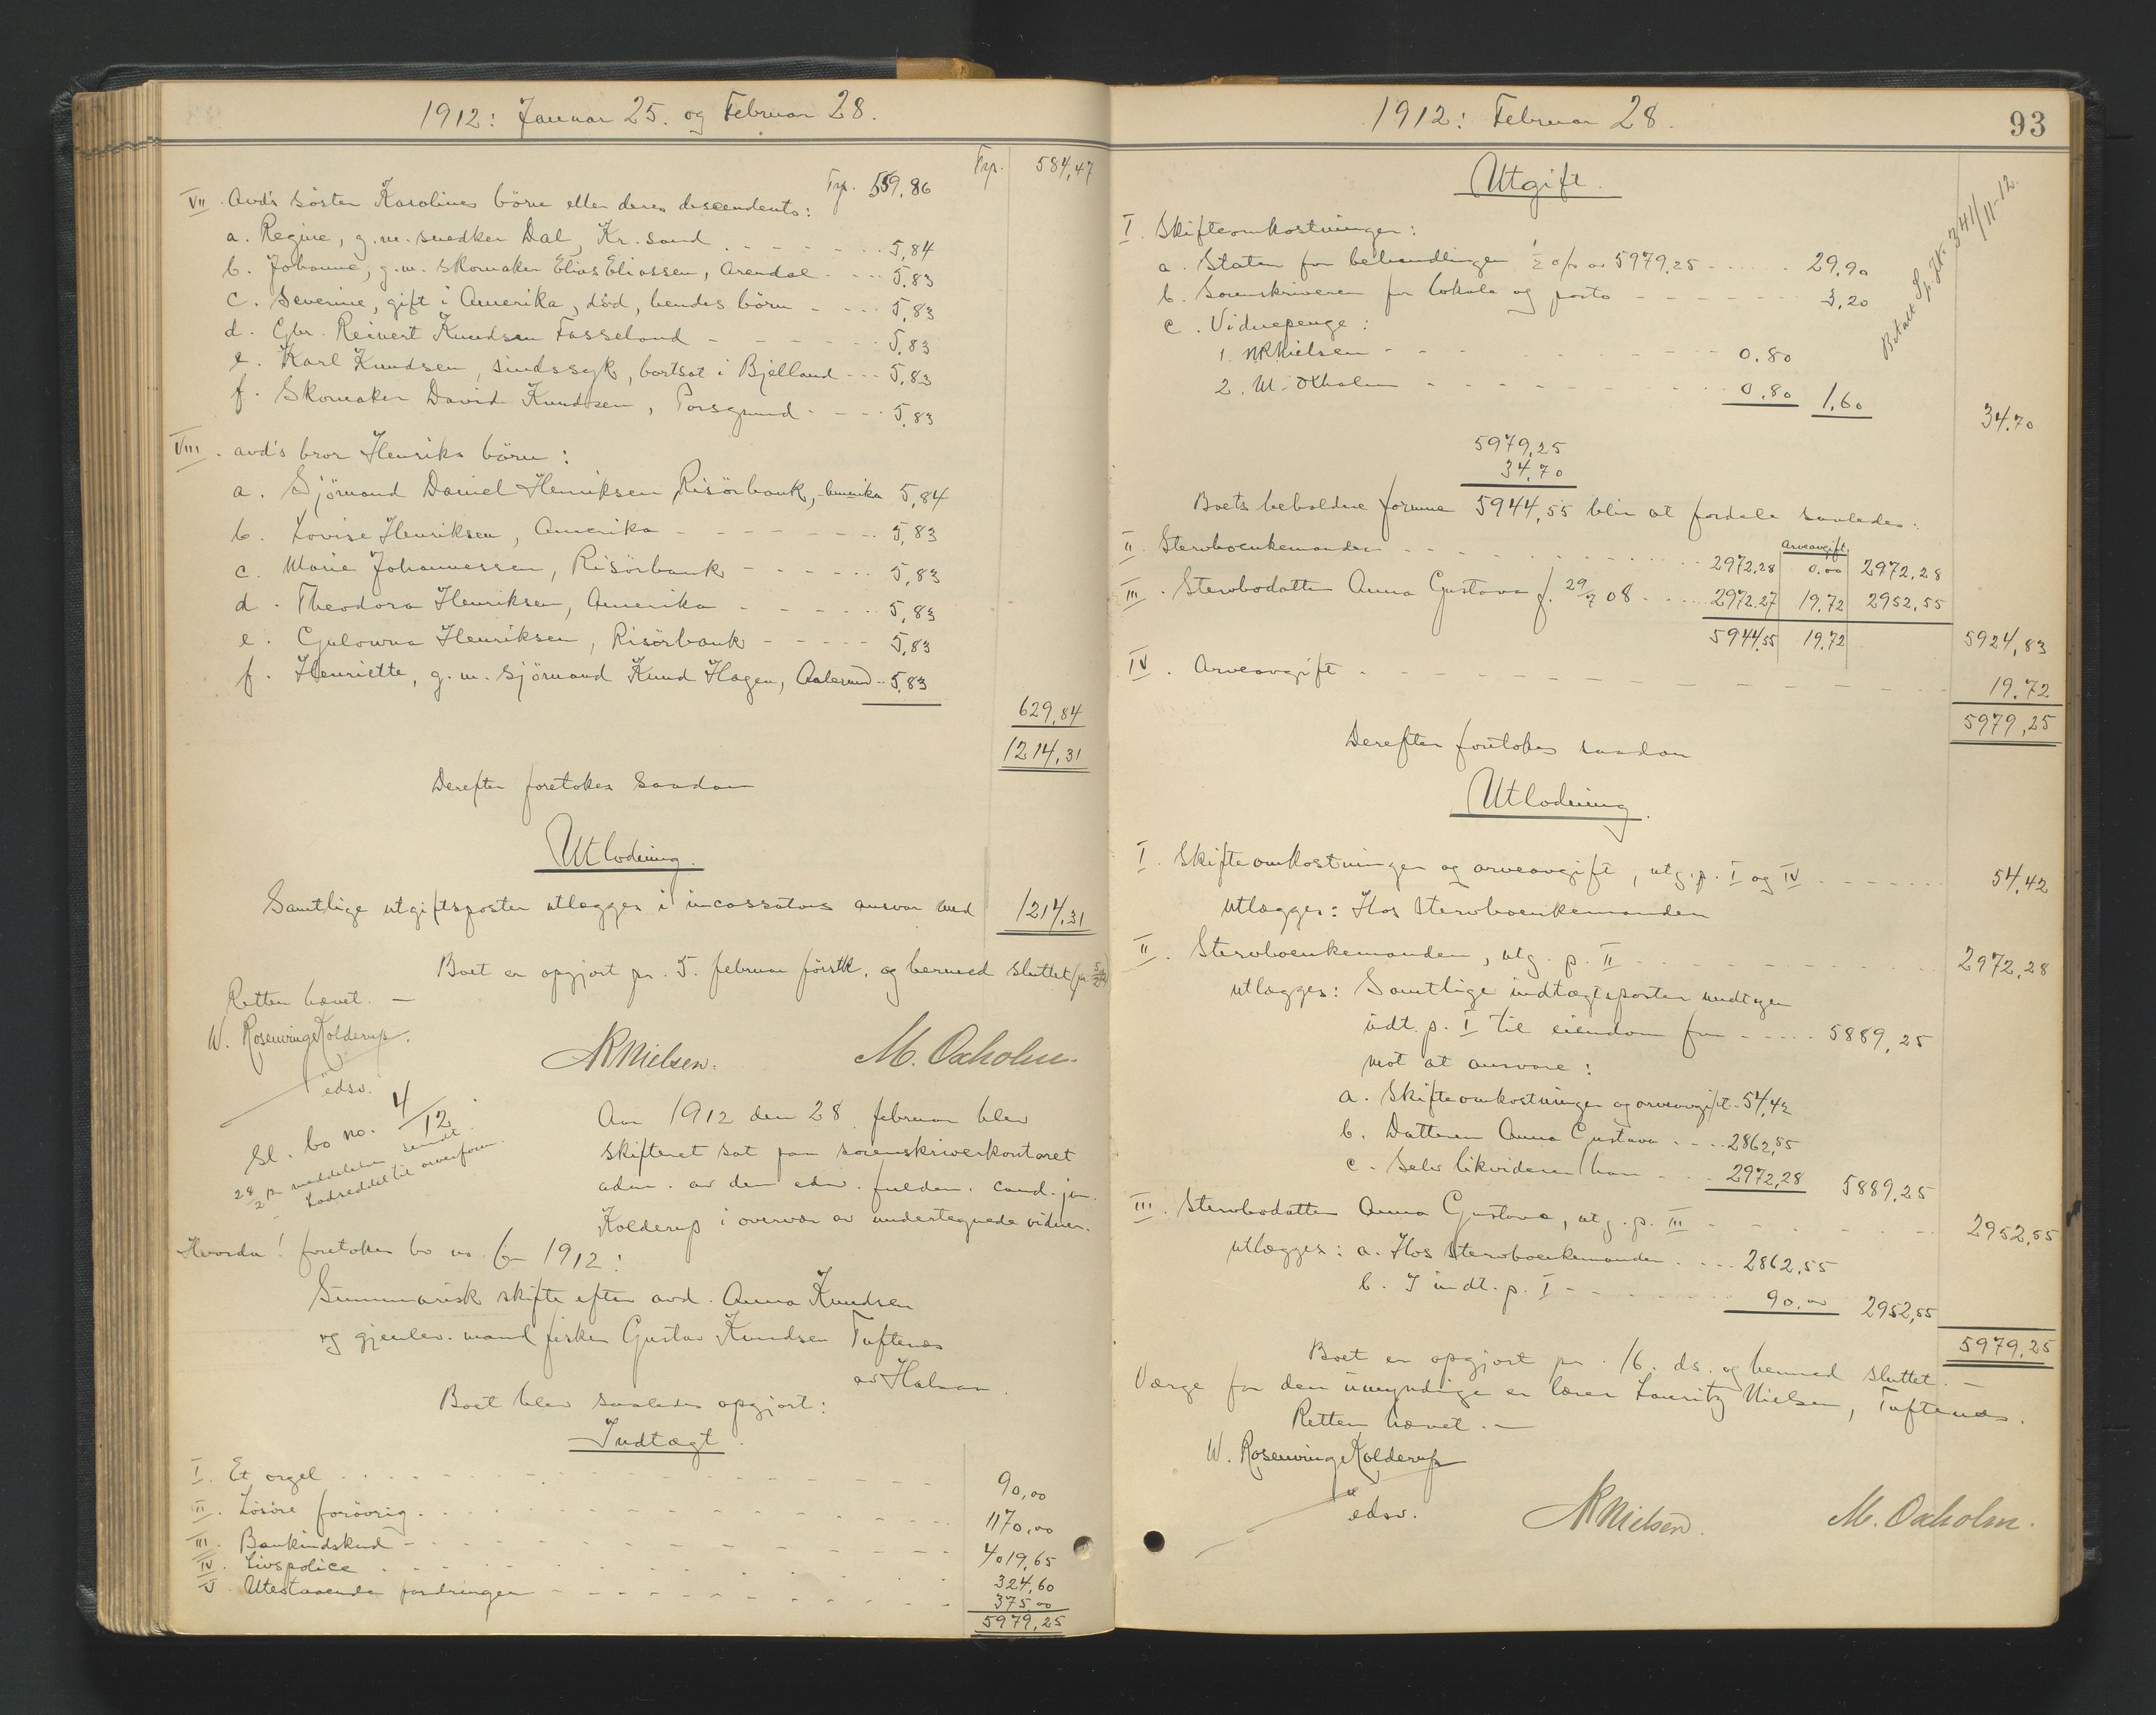 1912: Januar 25. og Februar 28.
Trp. 559,86 Trp. 584,47
VII. Avd's söster Karolines börn eller deres descendents:
a. Regine, g.m. snedker Dal, Kr.sand 5,84
b. Johanne, g.m. skomaker Elias Eliassen, Arendal 5,83
c. Severine, gift i Amerika, död, hendes börn 5,83
d. Gbr. Reinert Knudsen Fasseland 5,83
e. Karl Knudsen, sindssyk, bortsat i Bjelland 5,83
f. Skomaker David Knudsen, Porsgrund 5,83
VIII. avd's bror Henriks börn:
a. Sjömand Daniel Henriksen Risörbank, Amerika 5,84
b. Lovise Henriksen, Amerika 5,83
c. Marie Johannessen, Risörbank 5,83
d. Theodora Henriksen, Amerika 5,83
e. Gulowna Henriksen, Risörbank 5,83
f. Henriette, g.m. sjömand Knud Hagen, Aalesund 5,83
629,84
1214,31
Derefter foretokes saadan
Utlodning.
Samtlige utgiftsposter utlægges i incassators ansvar med 1214,31
Boet er opgjort pr. 5. februar förstk. og hermed sluttet
Retten hævet. —
W. Rosenvinge Kolderup.
edsv.
NRNielsen. M. Oxholm.
Sl. bo no. 4/12
28/2 12 meddelelse sendt
Lodseddel til
Aar 1912 den 28 februar blev
skifteret sat paa sorenskriverkontoret
adm. av den edsv. fuldm. cand. jur.
Kolderup i overvær av undertegnede vidner.
Hvorda! foretokes bo no. 6 - 1912:
Summarisk skifte efter avd. Anna Knudsen
og gjenlev. mand fisker Gustav Knudsen Tuftenes
av Halsaa.
Boet blev saaledes opgjort:
Indtægt.
I. Et orgel 90,00
II. Lösöre forövrig 1170,00
III. Bankindskud 4019,65
IV. Livspolice 324,60
V. Utestaaende fordringer 375,00
5979,25
1912: Februar 28.
93
Utgift.
Betalt Sp. Jr. 341/11-12.
I. Skifteomkostninger:
a. Staten for behandlingen ½ o/o av 5979,25 29,90
b. Sorenskriveren for lokale og porto 3,20
c. Vidnepenge:
1. NRNielsen 0.80
2. M. Oxholm 0.80 1,60
34.70
5979,25
34,70
Boets beholdne formue 5944,55 blir at fordele saaledes:
Arveavgift
II. Stervboenkemanden 2972,28 0.00 2972,28
III. Stervbodatter Anna Gustava f. 29/7 08 2972.27 19,72 2952,55
5944,55 19,72 5924,83
IV. Arveavgift 19.72
5979,25
Derefter foretokes saadan
Utlodning.
I. Skifteomkostninger og arveavgift, utg.p. I og IV 54,42
utlægges: Hos Stervboenkemanden
II. Stervboenkemanden, utg. p. II 2972,28
utlægges: Samtlige indtægtsposter undtagen
indt. p. I til eiendom for 5889,25
mot at ansvare:
a. Skifteomkostninger og arveavgift 54,42
b. Datteren Anna Gustava 2862,55
c. Selv likviderer han 2972,28 5889,25
III. Stervbodatter Anna Gustava, utg. p. III 2952,55
utlægges: a. Hos Stervboenkemanden 2862,55
b. I indt. p. I 90,00 2952,55
5979,25
Boet er opgjort pr. 16. ds. og hermed sluttet. —
Værge for den umyndige er lærer Lauritz Nielsen, Tuftenes.
Retten hævet. —
W. Rosenvinge Kolderup
edsv.
NRNielsen. M. Oxholm.